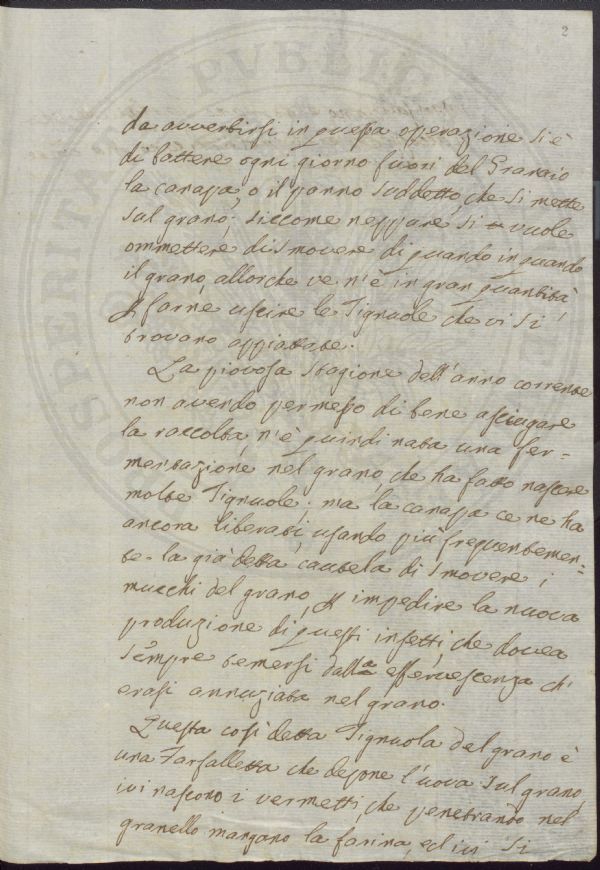 2
da avvertirsi in questa operazione si è
di battere ogni giorno fuori del Granaio
la canapa, o il panno suddetto, che si mette
sul grano; siccome neppure si vuole
ommettere di smovere di quando in quando
il grano, allorche ve n'è in gran quantità,
p farne uscire le Tignuole che vi si
trovano appiattate.
La piovosa stagione dell'anno corrente
non avendo permesso di bene asciugare
la raccolta, n'è quindi nata una fer=
mentazione nel grano, che ha fatto nascere
molte Tignuole; ma la canapa ce ne ha
ancora liberati, usando più frequentemen=
te la già detta cautela di smovere i
mucchi del grano, p impedire la nuova
produzione di questi insetti, che dovea
sempre temersi dalla effervescenza ch'
erasi annuziata nel grano.
Questa così detta Tignuola del grano è
una Farfalletta che depone l'uova sul grano,
ivi nascono i vermetti, che penetrando nel
granello mangano la farina, ed ivi si
PROSPERITATI PUBLICAE